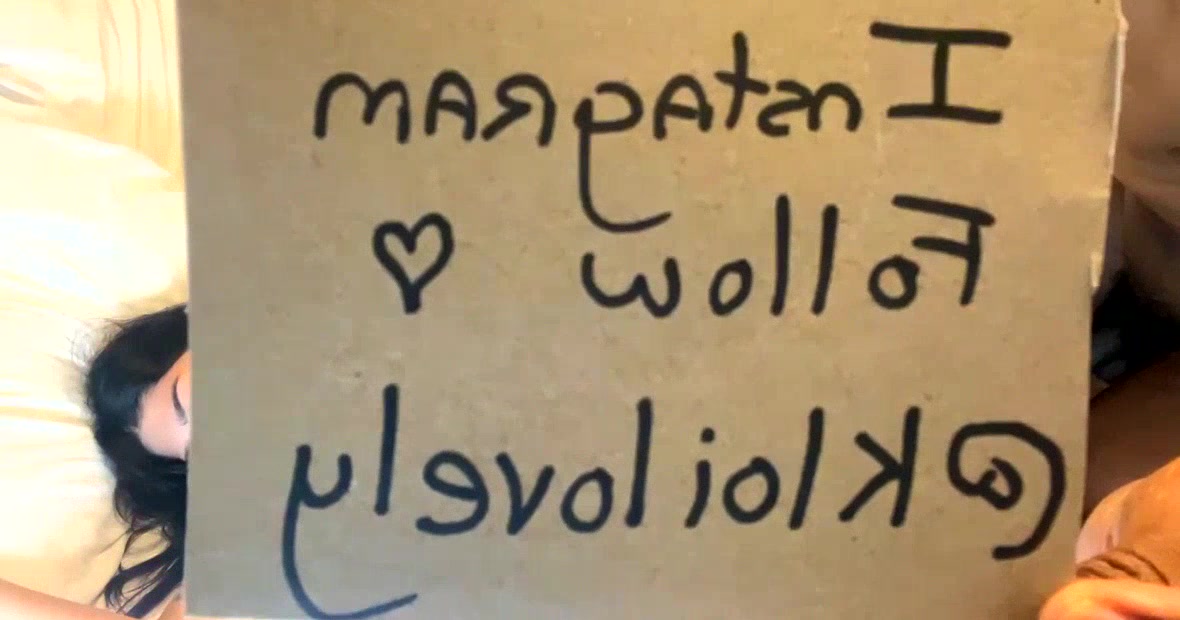 Instagram
Follow ♡
@kloilovely